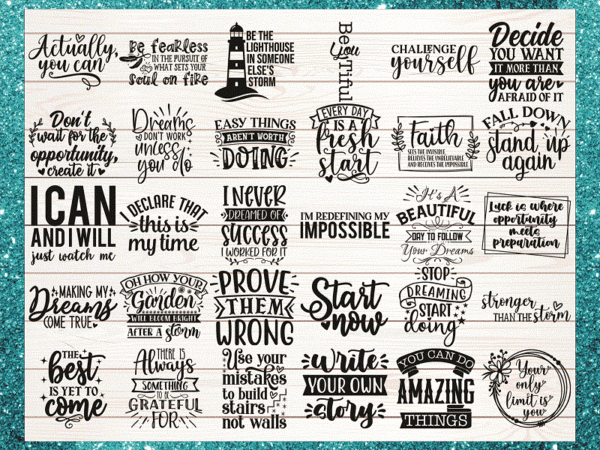 Actually,
you can.
Be fearless
IN THE PURSUIT
OF WHAT SETS YOUR
Soul on fire
BE THE
LIGHTHOUSE
IN SOMEONE
ELSE'S
STORM
Be
You
Tiful
CHALLENGE
yourself
Decide
YOU WANT
IT MORE THAN
you are
AFRAID OF IT
Don't
wait for the
opportunity,
create it
Dreams
DON'T WORK
unless
you do
EASY THINGS
AREN'T WORTH
DOING
EVERY DAY
IS A
fresh
start
Faith
SEES THE INVISIBLE,
BELIEVES THE UNBELIEVABLE
AND RECEIVES THE IMPOSSIBLE
FALL DOWN
stand up
again
I CAN
AND I WILL
just watch me
I DECLARE THAT
this is
my time
I NEVER
DREAMED OF
SUCCESS
I WORKED FOR IT
I'M REDEFINING MY
IMPOSSIBLE
IT'S A
BEAUTIFUL
DAY TO FOLLOW
Your Dreams
Luck is where
opportunity
meets
preparation
MAKING MY
Dreams
COME TRUE
OH HOW YOUR
Garden
WILL BLOOM BRIGHT
AFTER A storm
PROVE
THEM
WRONG
Start
now
STOP
DREAMING
START
doing
stronger
THAN THE storm
THE
best
IS YET TO
come
THERE IS
Always
SOMETHING
TO BE
GRATEFUL
FOR
Use your
mistakes
to build
stairs
not walls
write
YOUR OWN
story
YOU CAN DO
AMAZING
THINGS
Your
only
limit is
you